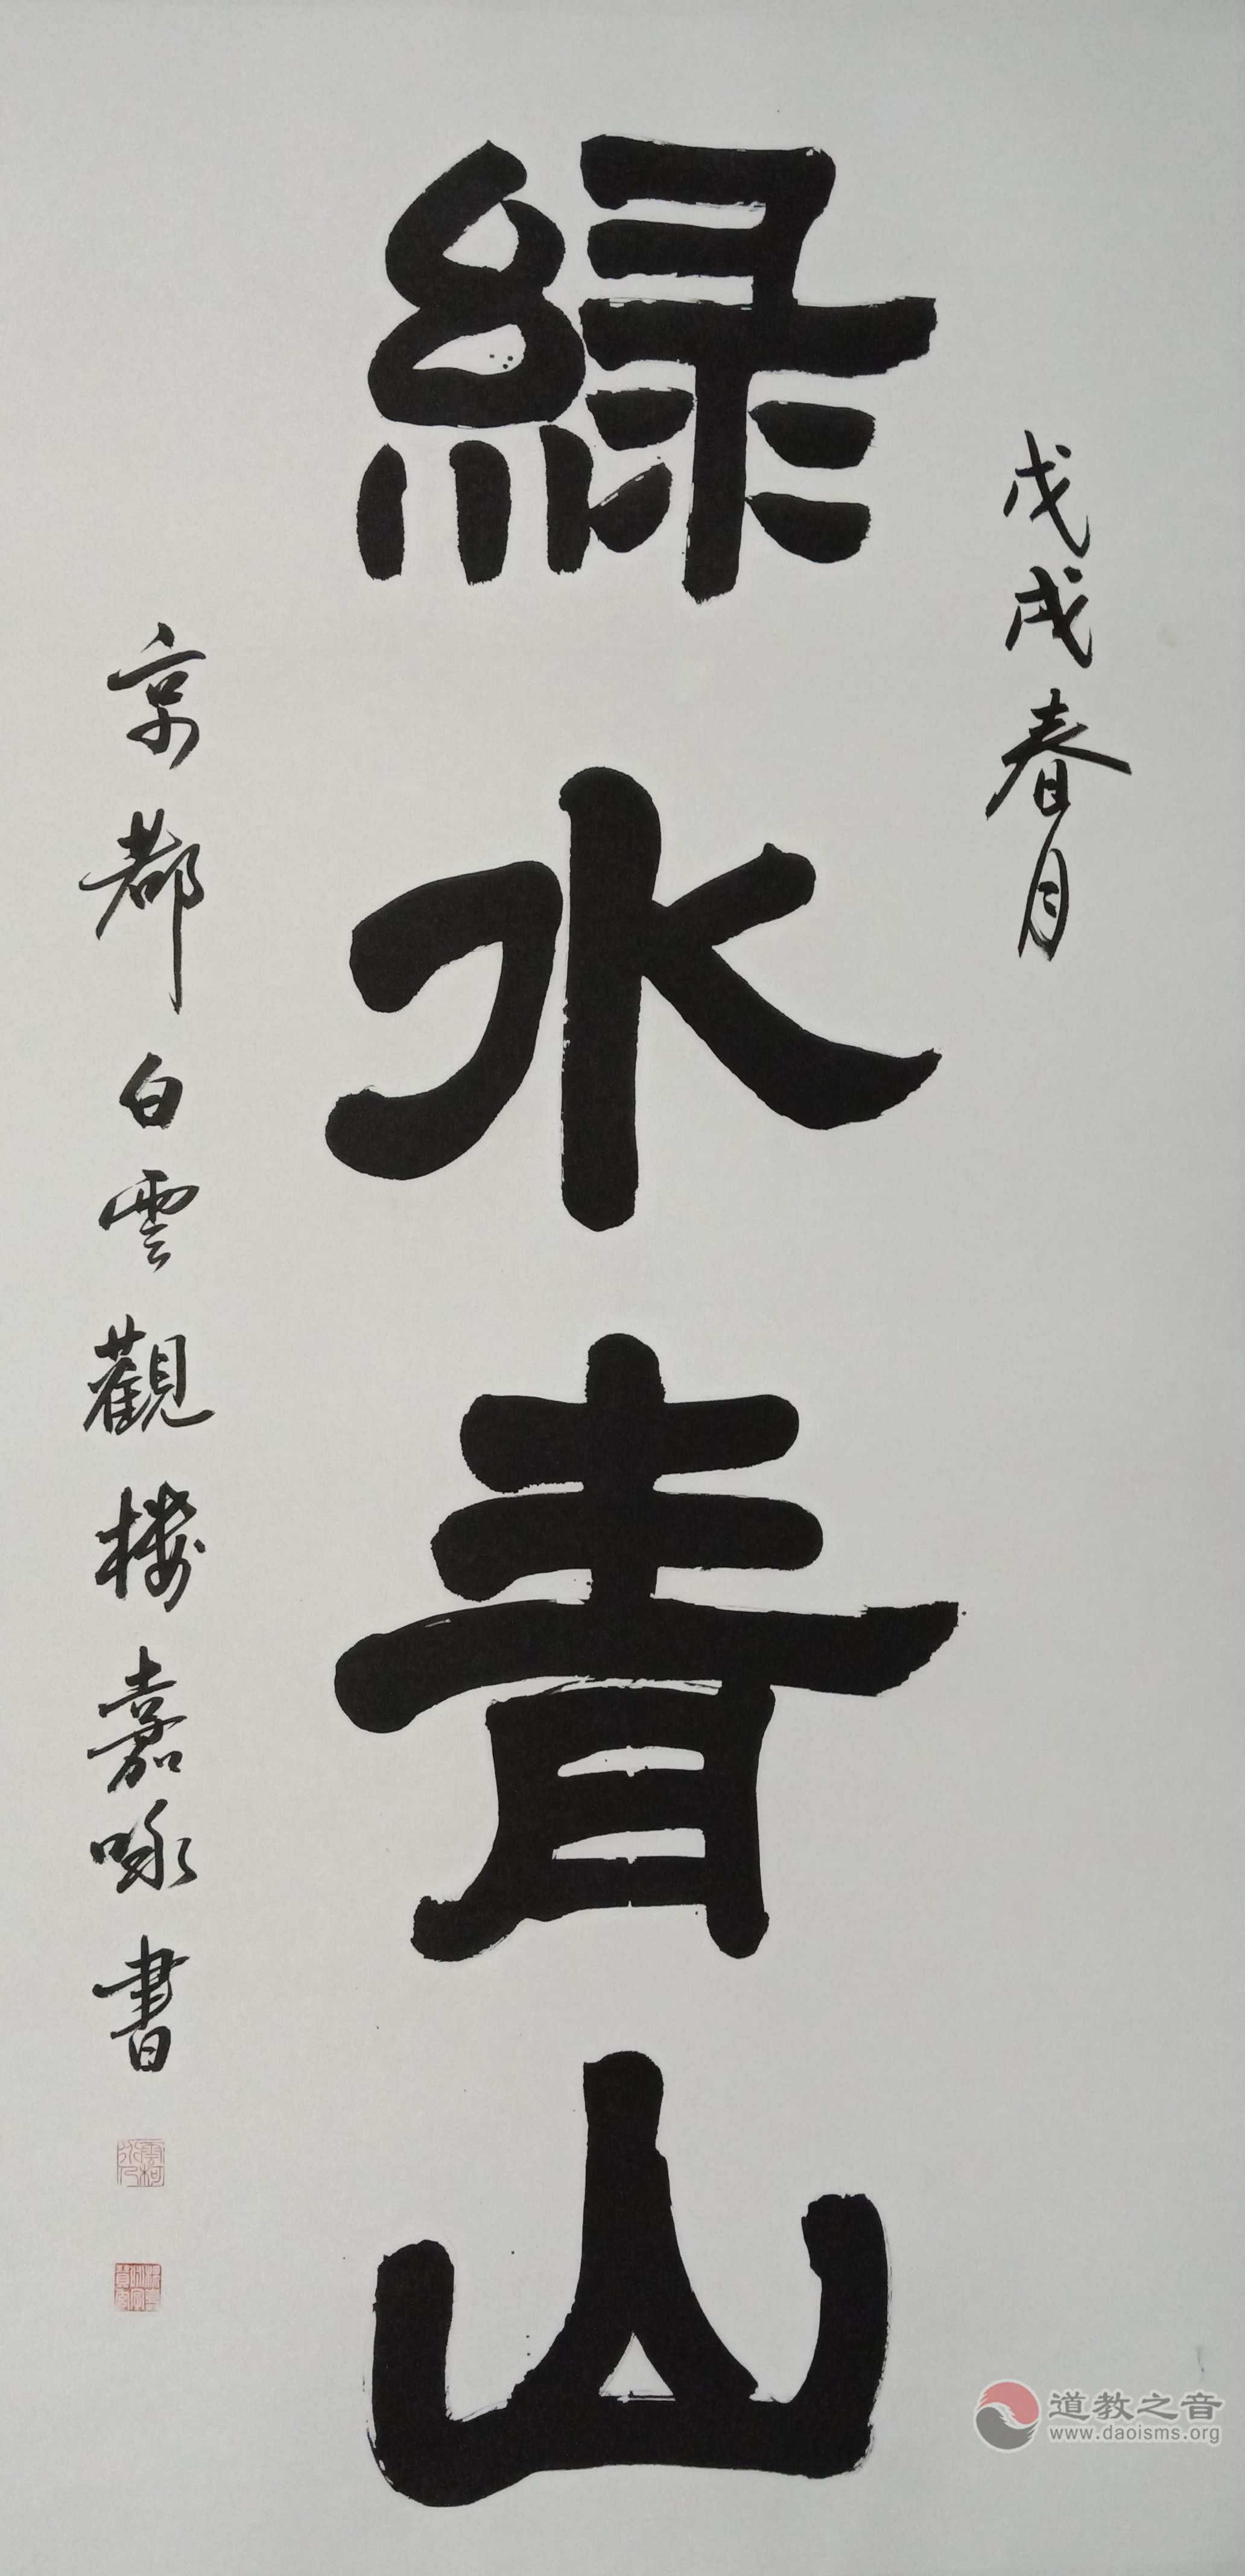 戊戌春月
緑水青山
京都白雲觀楼嘉咏書
道教之音
www.daoisms.org